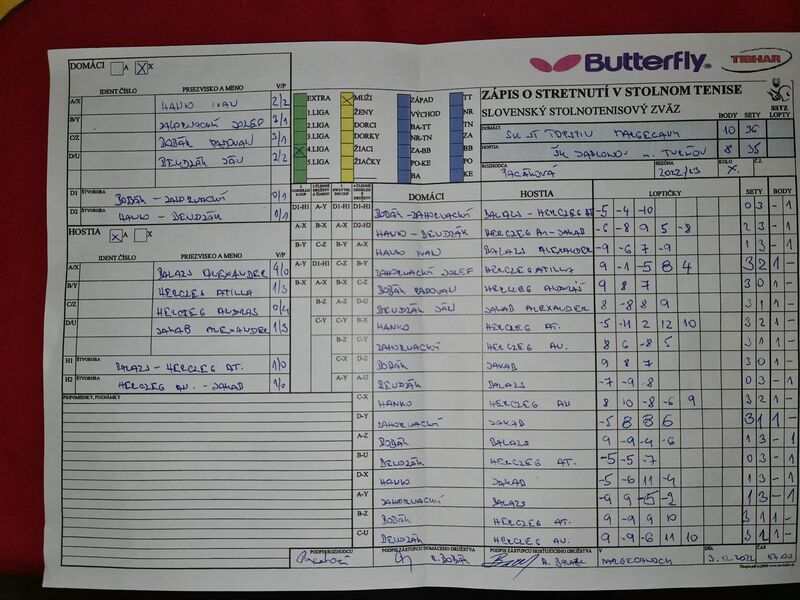 DOMÁCI A X
IDENT.ČÍSLO PRIEZVISKO A MENO V/P
A/X HANKO IVAN 2/2
B/Y ZAHORNACKÝ JOZEF 3/1
C/Z BOBÁK RADOVAN 3/1
D/U DEUDZÁK JÁN 2/2
D1 ŠTVORHRA BOBÁK - ZAHORNACKÝ 0/1
D2 HANKO - DEUDZÁK 0/1
HOSTIA A X
IDENT.ČÍSLO PRIEZVISKO A MENO V/P
A/X BALAZS ALEXANDER 4/0
B/Y HERCZEG ATILLA 1/3
C/Z HERCZEG ANDRÁS 0/4
D/U JAKAB ALEXANDER 1/3
H1 ŠTVORHRA BALAZS - HERCZEG AT. 1/0
H2 HERCZEG AN. - JAKAB 1/0
PRIPOMIENKY, POZNÁMKY
EXTRA MUŽI ZÁPAD TT
1.LIGA ŽENY VÝCHOD NR
2.LIGA DORCI BA-TT TN
3.LIGA DORKY NR-TN ZA
4.LIGA ŽIACI ZA-BB BB
5.LIGA ŽIAČKY PO-KE PO
BA KE
Butterfly
TIBHAR
ZÁPIS O STRETNUTÍ V STOLNOM TENISE
SLOVENSKÝ STOLNOTENISOVÝ ZVÄZ
BODY SETY LOPTY
SSTZ
DOMÁCI MARGECANY 10 36
HOSTIA ŠK JABLONOV n. TURŇOU 8 35
ROZHODCA 2022/23 KOLO X. Č.Z.
DOMÁCI HOSTIA LOPTIČKY SETY BODY
D1-H1 BOBÁK-ZAHORNACKÝ BALAZS - HERCZEG AT -5 -4 -10 0 3 - 1
D2-H2 HANKO - DEUDZÁK HERCZEG AN-JAKAB -6 -8 9 5 -8 2 3 - 1
A-X HANKO IVAN BALAZS ALEXANDER -9 -6 7 -9 1 3 - 1
B-Y ZAHORNACKÝ JOZEF HERCZEG ATILLA 9 -1 -5 8 4 3 2 1 -
C-Z BOBÁK RADOVAN HERCZEG ANDRÁS 9 8 7 3 0 1 -
D-U DEUDZÁK JÁN JAKAB ALEXANDER 8 -8 8 9 3 1 1 -
B-X HANKO HERCZEG AT. -5 -11 2 12 10 3 2 1 -
C-Y ZAHORNACKÝ HERCZEG AN. 8 6 -8 5 3 1 1 -
D-Z BOBÁK JAKAB 9 8 7 3 0 1 -
A-U DEUDZÁK BALAZS -7 -9 -8 0 3 - 1
C-X HANKO HERCZEG AN 8 10 -8 -6 9 3 2 1 -
D-Y ZAHORNACKÝ JAKAB -5 8 8 6 3 1 1 -
A-Z BOBÁK BALAZS 9 -9 -4 -6 1 3 - 1
B-U DEUDZÁK HERCZEG AT. -5 -5 -7 0 3 - 1
D-X HANKO JAKAB -5 -6 11 -4 1 3 - 1
A-Y ZAHORNACKÝ BALAZS -9 9 -5 -2 1 3 - 1
B-Z BOBÁK HERCZEG AT. -9 9 9 10 3 1 1 -
C-U DEUDZÁK HERCZEG AN. 9 -9 -6 11 10 3 2 1 -
PODPIS ROZHODCU PODPIS ZÁSTUPCU DOMÁCEHO DRUŽSTVA PODPIS ZÁSTUPCU HOSŤUJÚCEHO DRUŽSTVA V DŇA ČAS
R. BOBÁK A. BALAZS MARGECANOCH 3.12.2022 17.00